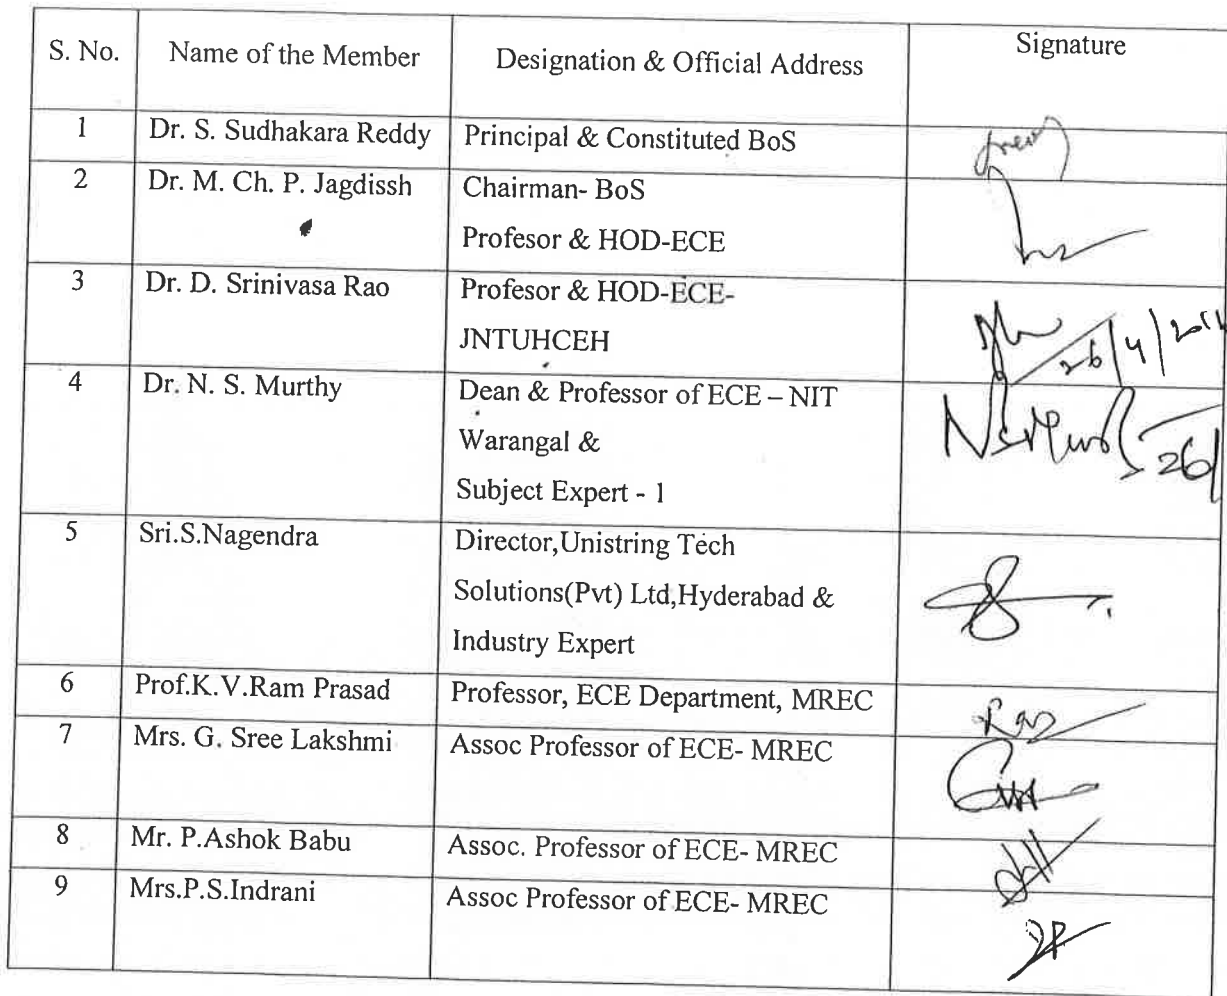 S. No. Name of the Member Designation & Official Address Signature
1 Dr. S. Sudhakara Reddy Principal & Constituted BoS
2 Dr. M. Ch. P. Jagdissh Chairman- BoS
Profesor & HOD-ECE
3 Dr. D. Srinivasa Rao Profesor & HOD-ECE-
JNTUHCEH
26/4/201
4 Dr. N. S. Murthy Dean & Professor of ECE – NIT
Warangal &
26/
Subject Expert - 1
5 Sri.S.Nagendra Director,Unistring Tech
Solutions(Pvt) Ltd,Hyderabad &
Industry Expert
6 Prof.K.V.Ram Prasad Professor, ECE Department, MREC
7 Mrs. G. Sree Lakshmi Assoc Professor of ECE- MREC
8 Mr. P.Ashok Babu Assoc. Professor of ECE- MREC
9 Mrs.P.S.Indrani Assoc Professor of ECE- MREC